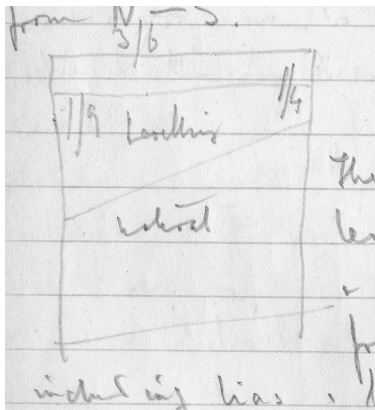 from N - S.
3/6
1/4
1/9 Levelling
natural
The
le
including lias.